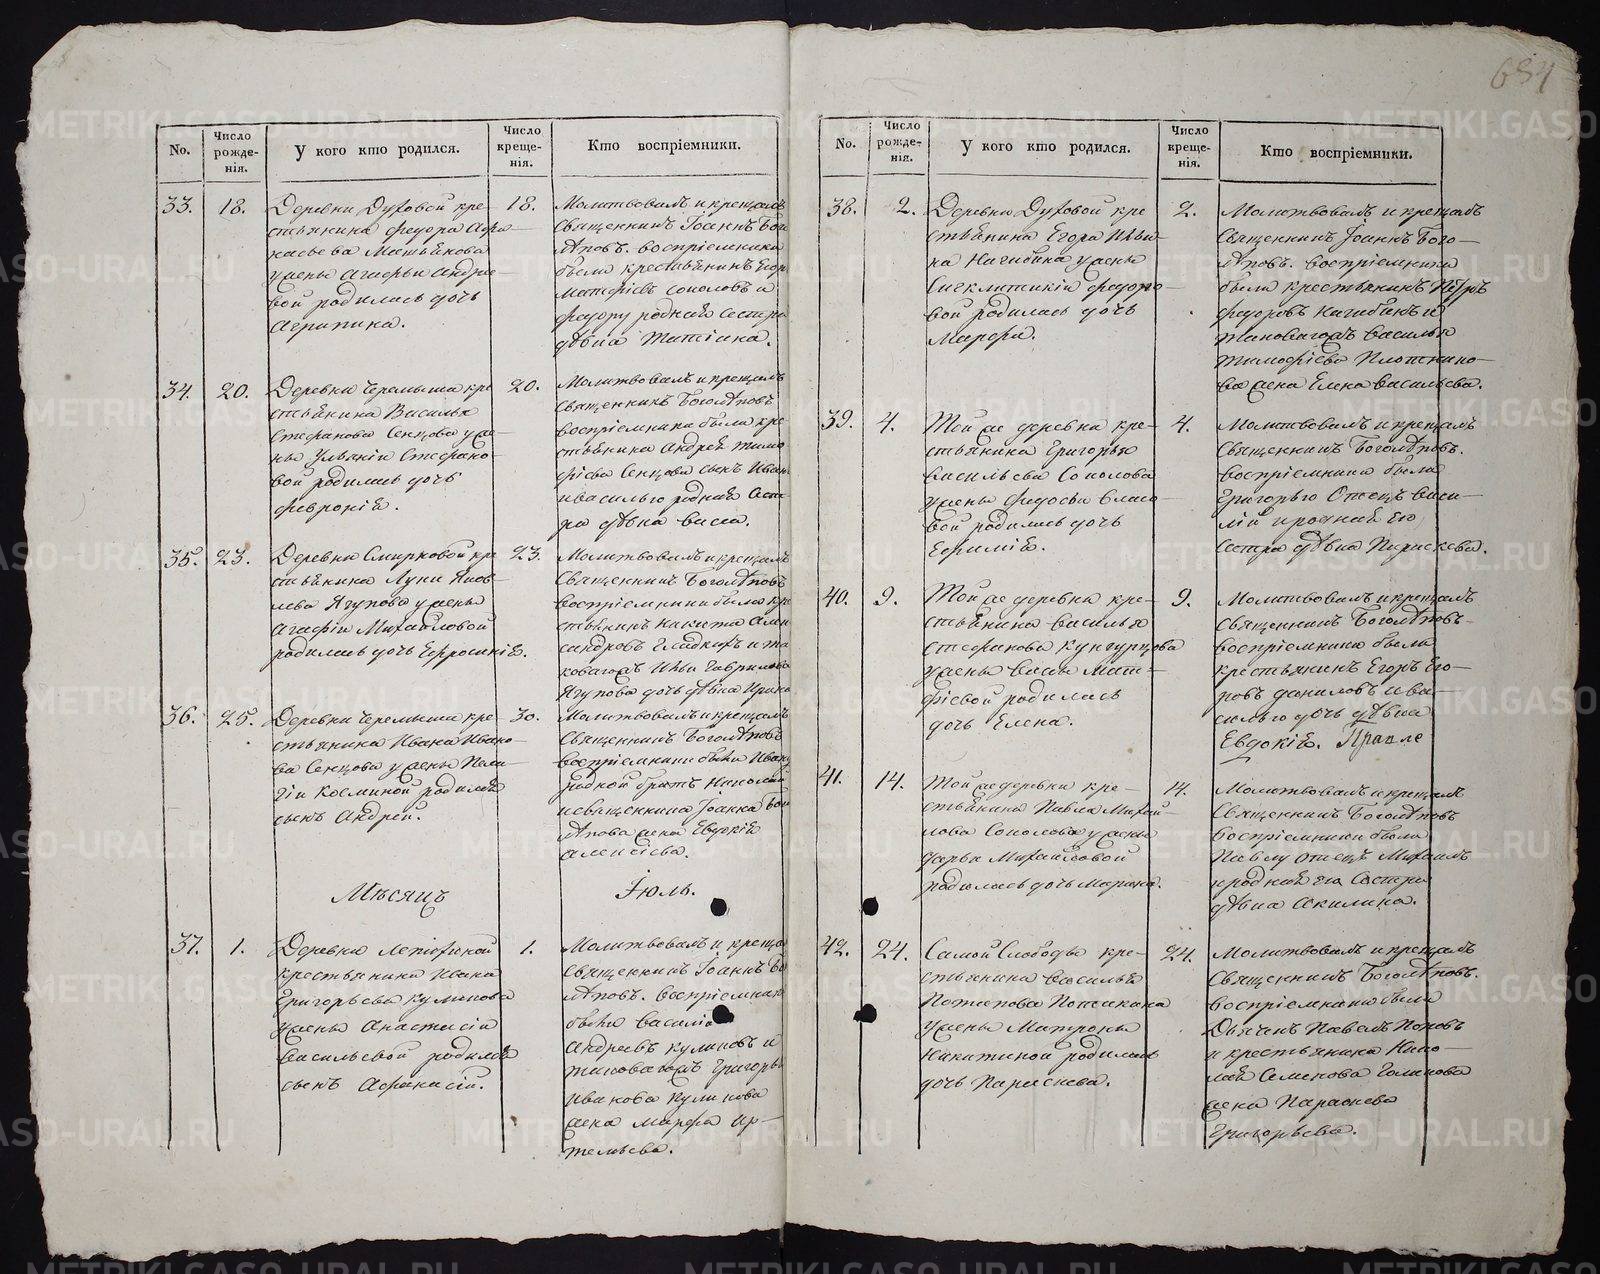 684
No.
Число рожде-нія.
У кого кто родился.
Число креще-нія.
Кто воспріемники.
33.
18.
Деревни Духовой кре-
стьянина Федора Афа-
насьева Матвѣкова
у жены Агафьи Андрее-
вой родилась дочь
Агрипина.
18.
Молитвовалъ и крещалъ
Священникъ Іоаннъ Бого
лѣповъ. воспріемники
были крестьянинъ Егоръ
Матфіевъ Соколовъ и
Федору родная сестра
дѣвка Татіана.
34.
20.
Деревни Черемыша кре
стьянина Василья
Стефанова Сенцова у же-
ны Ульяніи Стефано-
вой родилась дочь
Февронія.
20.
Молитвовалъ и крещалъ
Священникъ Боголѣповъ
воспріемники были кре
стьянина Андрея Тимо
фіева Сенцова сынъ Иванъ
и Василью родная сест-
ра дѣвка Васса.
35.
23.
Деревни Смирновой кре
стьянина Луки Яков-
лева Ягупова у жены
Агафіи Михайловой
родилась дочь Ефросинія.
23.
Молитвовалъ и крещалъ
Священникъ Боголѣповъ
воспріемники были кре
стьянинъ Никита Алек
сандровъ Гладкихъ и та
ковагожъ Ильи Гаврилова
Ягупова дочь дѣвка Ирина
36.
25.
Деревни Черемыша кре-
стьянина Ивана Ивано-
ва Сенцова у жены Пела-
гіи Косминой родился
сынъ Андрей.
30.
Молитвовалъ и крещалъ
Священникъ Боголѣповъ
воспріемники были Ивану
родной братъ Николай
и священника Іоанна Бого
лѣпова жена Евдокія
Алексіева.
Мѣсяцъ
Іюль.
37.
1.
Деревни
крестьянина Ивана
Григорьева Куликова
у жены Анастасіи
Васильевой родился
сынъ Афанасій.
1.
Молитвовалъ и креща
Священникъ Іоаннъ Бо
лѣповъ. Воспріемники
были Василій
Андреевъ Куликовъ и
таковагожъ Григорья
Иванова Куликова
жена Марфа Ар-
тельева.
No.
Число рожде-нія.
У кого кто родился.
Число креще-нія.
Кто воспріемники.
38.
2.
Деревни Духовой кре
стьянина Егора Ильи-
на Нагибина у жены
Сигклитикіи Федоро-
вой родилась дочь
Марфа.
2.
Молитвовалъ и крещалъ
Священникъ Іоаннъ Бого-
лѣповъ. воспріемники
были крестьянинъ Петръ
Федоровъ Нагибинъ и
таковагожъ Василья
Тимофіева Плотнико-
ва жена Елена Васильева.
39.
4.
Той же деревни кре-
стьянина Григорья
Васильева Соколова
у жены Федосьи Власо-
вой родилась дочь
Евфимія.
4.
Молитвовалъ и крещалъ
Священникъ Боголѣповъ.
воспріемники были
Григорью Отецъ Васи-
лій и родная его
сестра дѣвка Парискева.
40.
9.
Той же деревни кре-
стьянина Василья
Стефанова Кунгурцова
у жены Вассы Мат-
фіевой родилась
дочь Елена.
9.
Молитвовалъ и крещалъ
Священникъ Боголѣповъ.
воспріемники были
крестьянинъ Егоръ Его-
ровъ Даниловъ и Ва-
силью дочь дѣвка
Евдокія.
41.
14.
Той же деревни кре-
стьянина Павла Михай-
лова Соколова у жены
Дарьи Михайловой
родилась дочь Марина.
14.
Молитвовалъ и крещалъ
Священникъ Боголѣповъ
воспріемники были
Павлу отецъ Михаилъ
и родная его Сестра
дѣвка Акилина.
42.
24.
Самой Слободы кре-
стьянина Василья
Потапова Потакана
у жены Матроны
Никитиной родилась
дочь Параскева.
24.
Молитвовалъ и крещалъ
Священникъ Боголѣповъ.
воспріемники были
Дьячекъ Павелъ Поповъ
и крестьянина Нико-
лая Семенова Голикова
жена Параскева
Григорьева.